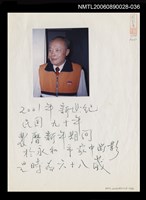 NMTL20060890028-036
2001年新世紀
民國九十年
農曆新年期间
於永和平家中留影
是時為六十八歲